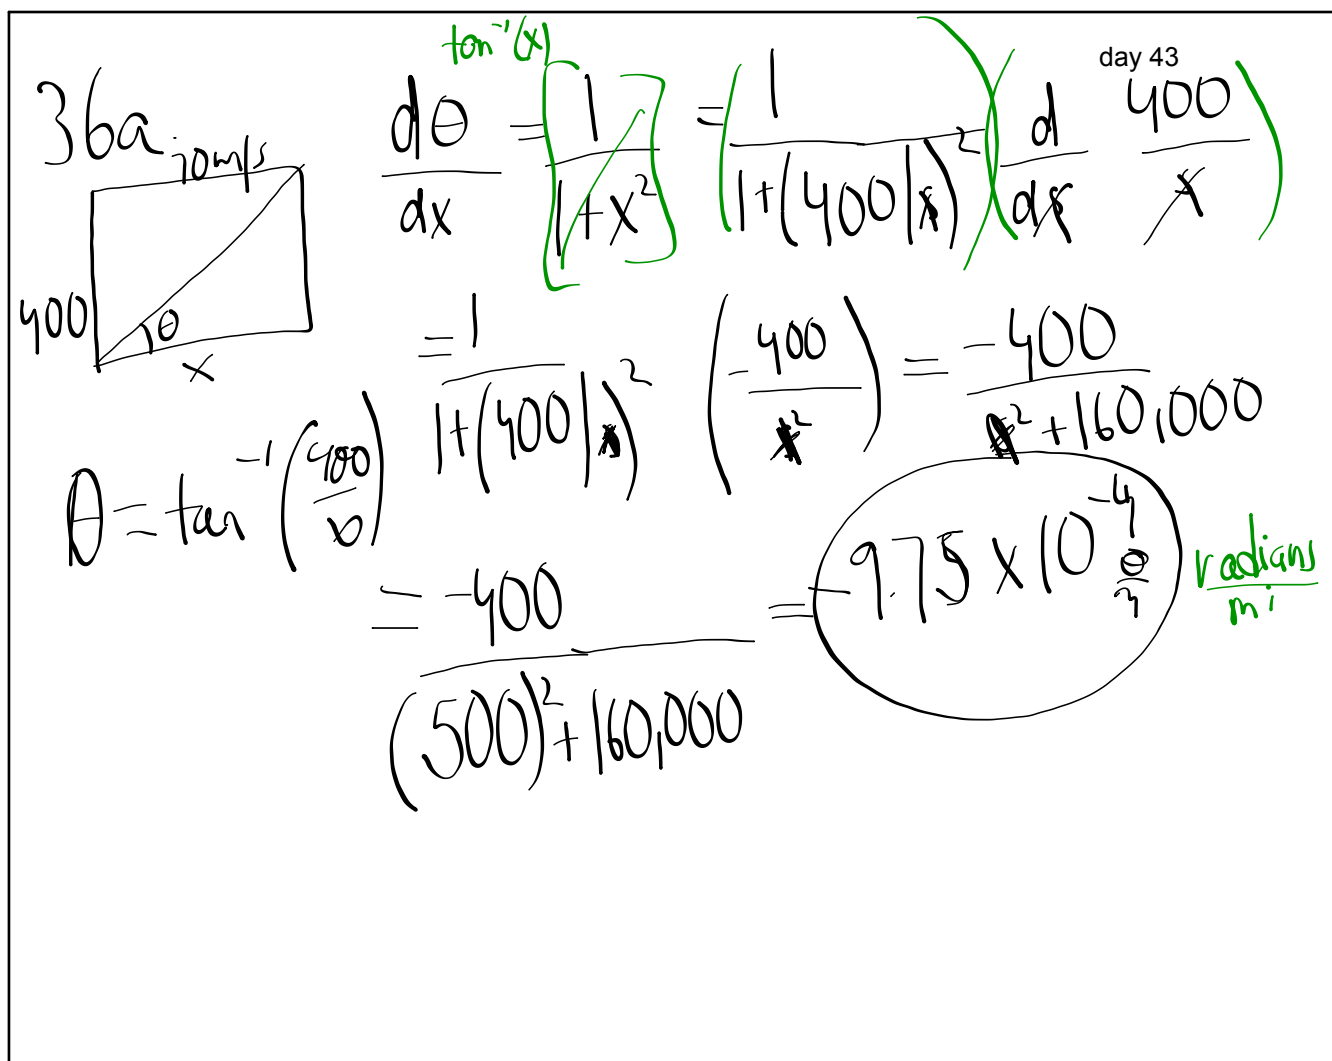 day 43
36a
10 m/s
400
θ
x
θ = tan⁻¹(400/x)
tan⁻¹(x)
dθ/dx = [1/(1+x²)] = (1/(1+(400/x)²)) (d/dx 400/x)
= 1/(1+(400/x)²) (-400/x²) = -400/(x²+160,000)
= -400/((500)²+160,000) = -9.75 x 10⁻⁴
radians/mi